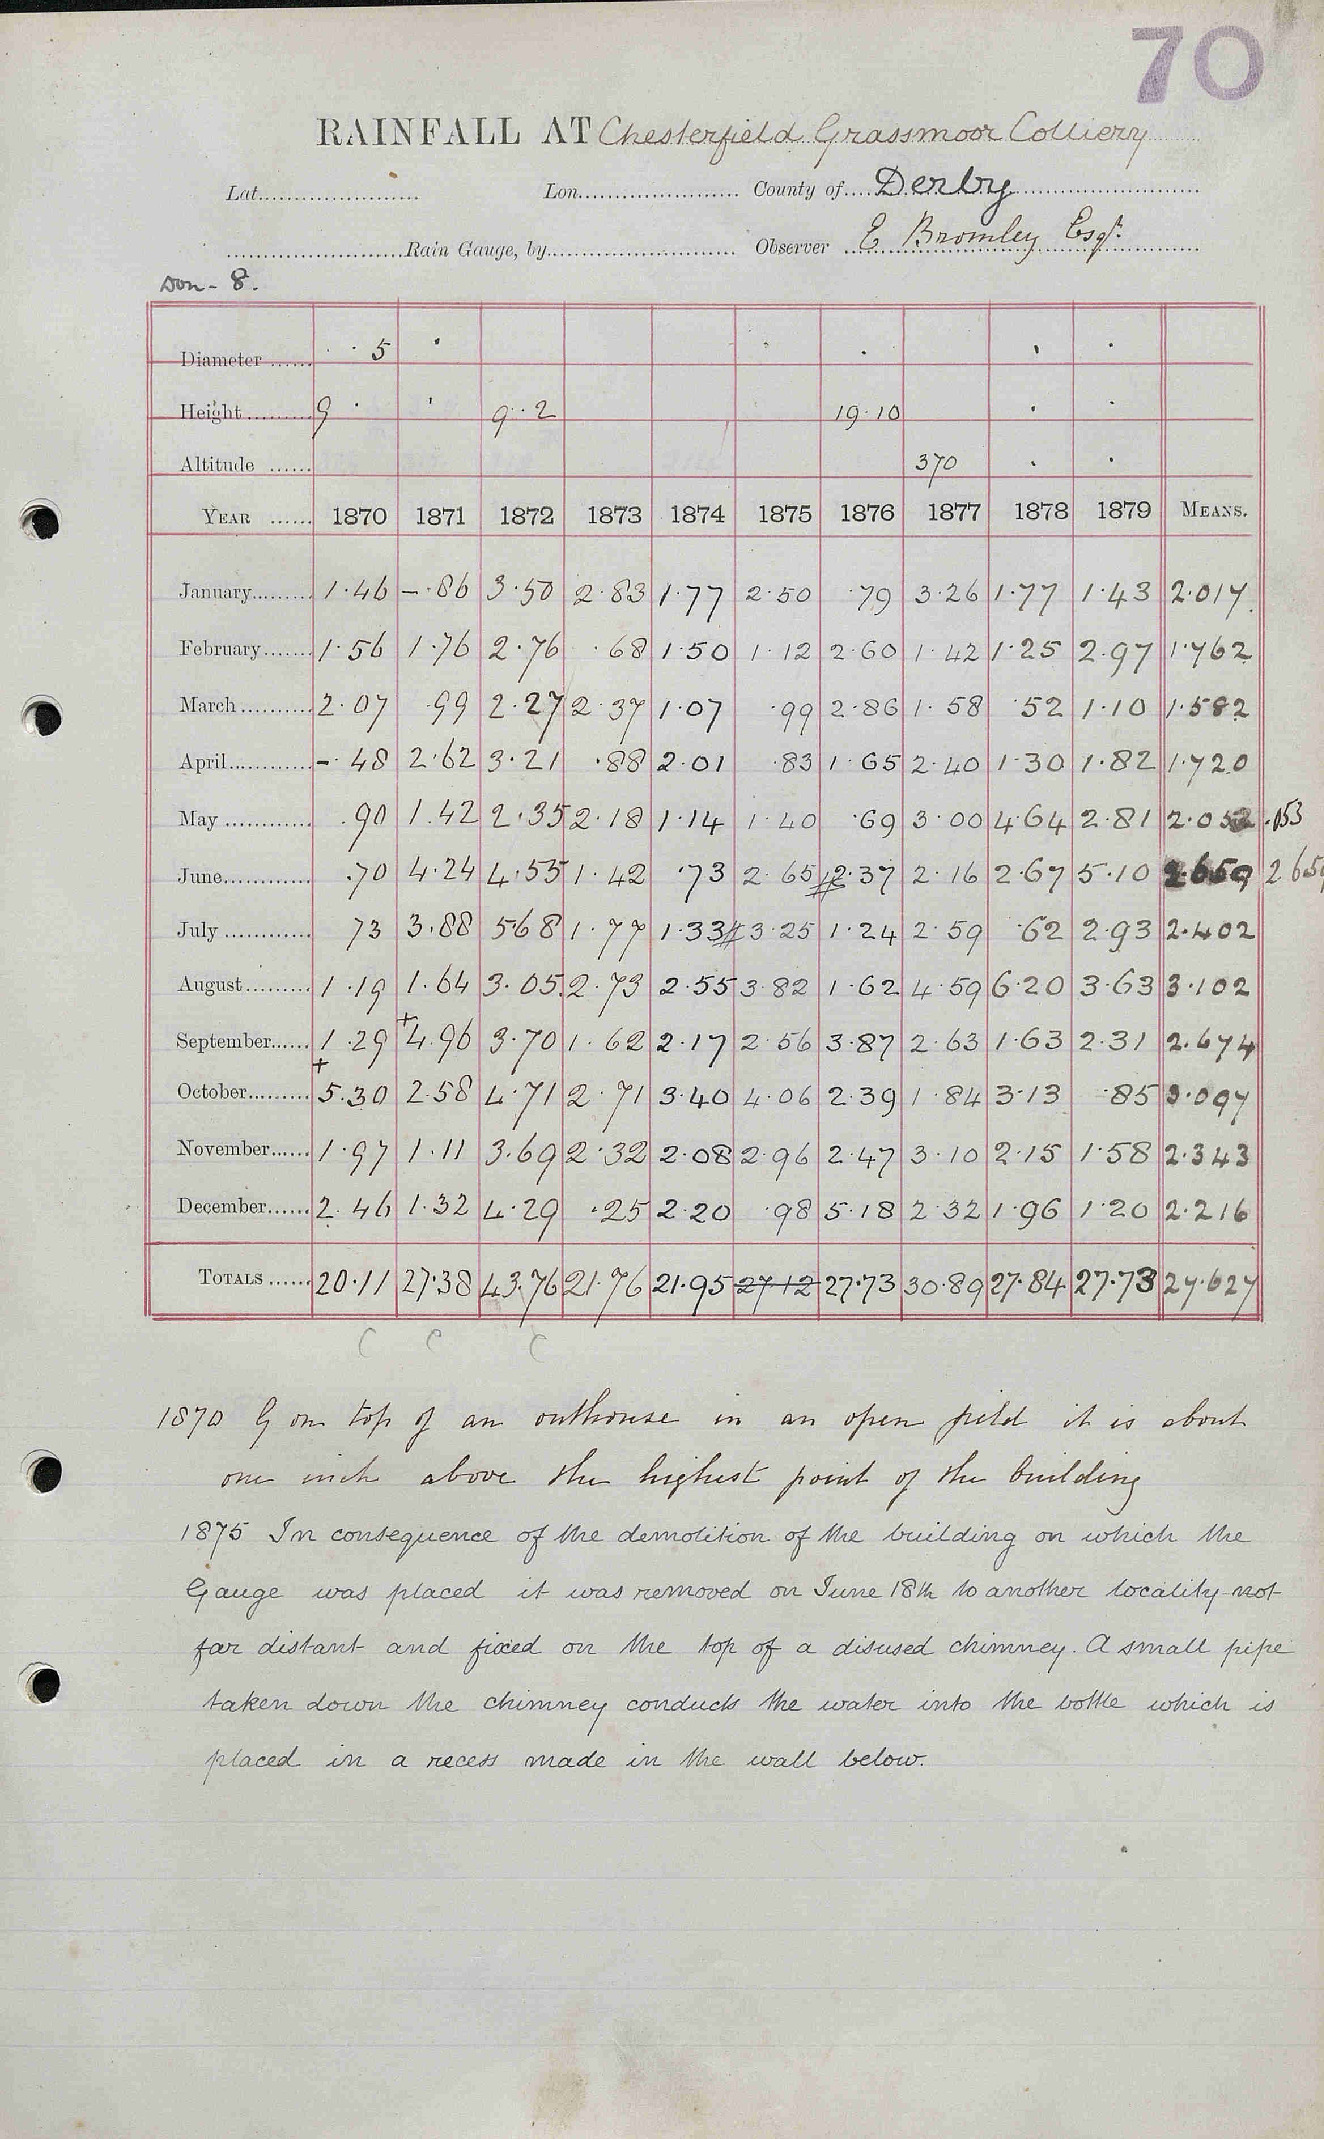 70
RAINFALL AT Chesterfield Grassmoor Colliery
Lat. Lon. County of Derby
Rain Gauge, by Observer E Bromley Esqr.
Don - 8.
Diameter 5
Height 9 9.2 19.10
Altitude 370
YEAR 1870 1871 1872 1873 1874 1875 1876 1877 1878 1879 MEANS.
January 1.46 -.86 3.50 2.83 1.77 2.50 .79 3.26 1.77 1.43 2.017
February 1.56 1.76 2.76 .68 1.50 1.12 2.60 1.42 1.25 2.97 1.762
March 2.07 .99 2.27 2.37 1.07 .99 2.86 1.58 .52 1.10 1.582
April -.48 2.62 3.21 .88 2.01 .83 1.65 2.40 1.30 1.82 1.720
May .90 1.42 2.35 2.18 1.14 1.40 .69 3.00 4.64 2.81 2.052 .053
June .70 4.24 4.55 1.42 .73 2.65 2.37 2.16 2.67 5.10 2.659 2 659
July 73 3.88 5.68 1.77 1.33 3.25 1.24 2.59 .62 2.93 2.402
August 1.19 1.64 3.05 2.73 2.55 3.82 1.62 4.59 6.20 3.63 3.102
September 1.29 +4.96 3.70 1.62 2.17 2.56 3.87 2.63 1.63 2.31 2.674
October +5.30 2.58 4.71 2.71 3.40 4.06 2.39 1.84 3.13 .85 3.097
November 1.97 1.11 3.69 2.32 2.08 2.96 2.47 3.10 2.15 1.58 2.343
December 2.46 1.32 4.29 .25 2.20 .98 5.18 2.32 1.96 1.20 2.216
TOTALS 20.11 27.38 43.76 21.76 21.95 27.12 27.73 30.89 27.84 27.73 27.627
C C C
1870 G on top of an outhouse in an open field it is about
one inch above the highest point of the building
1875 In consequence of the demolition of the building on which the
Gauge was placed it was removed on June 18th to another locality not
far distant and fixed on the top of a disused chimney. A small pipe
taken down the chimney conducts the water into the bottle which is
placed in a recess made in the wall below.